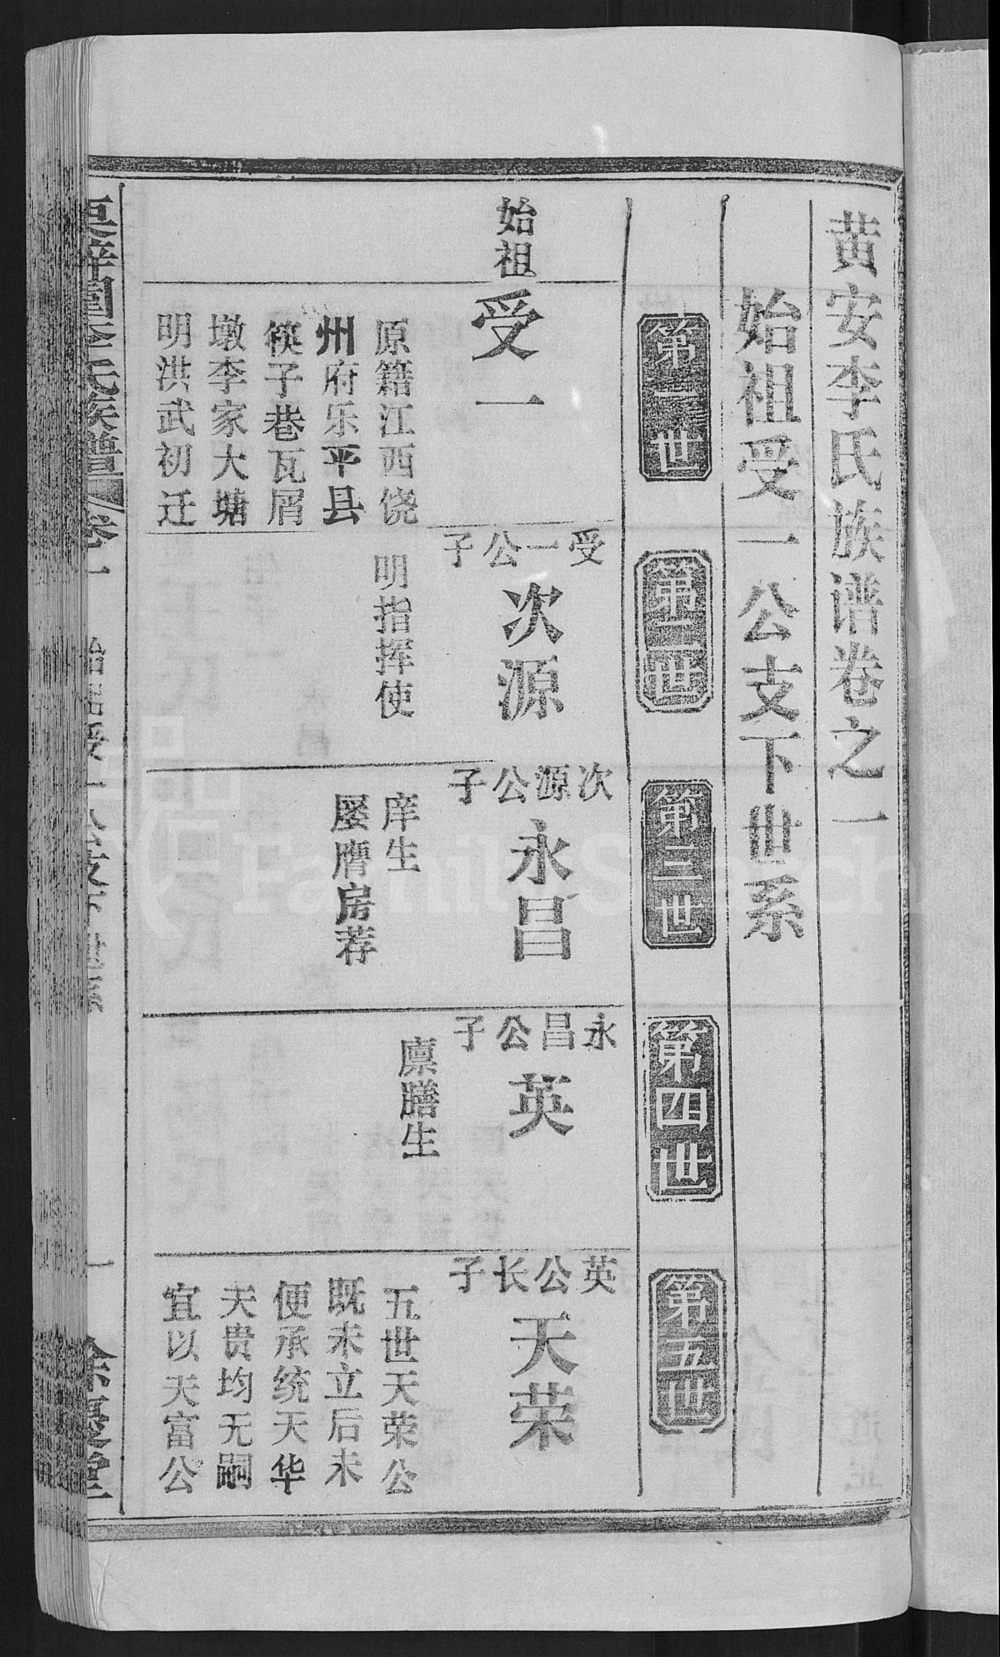 黄安李氏族谱卷之一
始祖受一公支下世系
第一世
第二世
第三世
第四世
第五世
始祖
受一
原籍江西饶
州府乐平县
筷子巷瓦屑
墩李家大塘
明洪武初迁
受一公子
次源
明指挥使
次源公子
永昌
庠生
屡膺房荐
永昌公子
英
廪膳生
英公长子
天荣
五世天荣公
既未立后未
便承统天华
天贵均无嗣
宜以天富公
李氏族谱 卷一
一